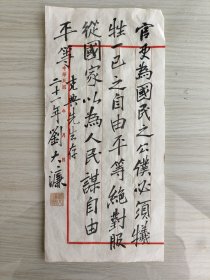 官吏為國民之公僕必須犧
牲一己之自由平等絕對服
從國家以為人民謀自由
平等
克興先生存
二十一年劉大濂